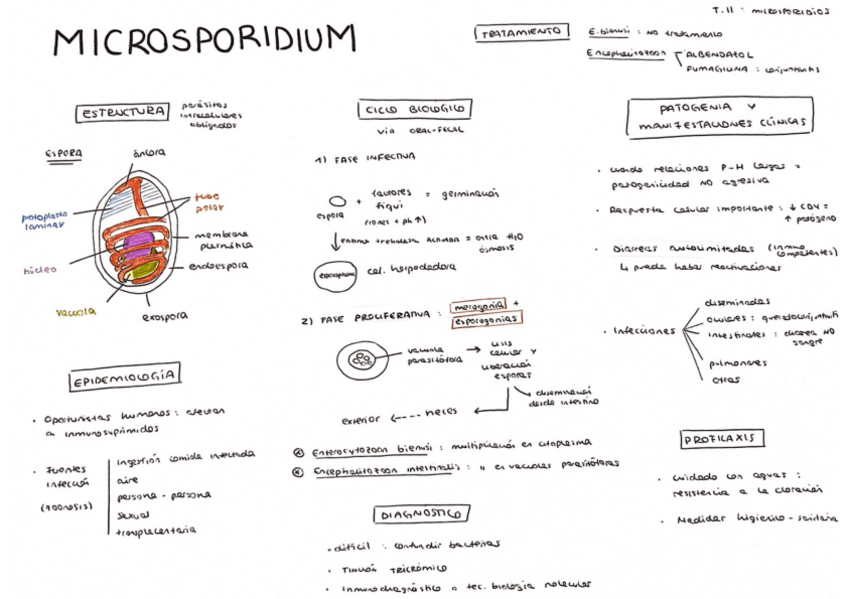 T.11 : MICROSPORIDIOS
MICROSPORIDIUM
TRATAMIENTO
E. bienusi : NO tratamiento
Encephalitozoon
ALBENDAZOL
FUMAGILINA : conjuntivitis
ESTRUCTURA
parásitos
intracelulares
obligados
ESPORA
áncora
polaroplasto
laminar
tubo
polar
membrana
plasmática
núcleo
endospora
vacuola
exospora
EPIDEMIOLOGÍA
· Oportunistas humanos : afectan
a inmunosuprimidos
· Fuentes
infección
(zoonosis)
Ingestión comida infectada
aire
persona - persona
sexual
transplacentaria
CICLO BIOLÓGICO
VÍA ORAL-FECAL
1) FASE INFECTIVA
espora
+ factores = germinación
fiqui
(iones + ph ↑)
enzima trehalasa activan = entra H2O
ósmosis
esporoplasma
cel. hospedadora
2) FASE PROLIFERATIVA :
merogonia +
esporogonias
vacuola
parasitófora
lisis
celular y
liberación
esporas
diseminación
desde intestino
exterior
heces
Enterocytozoon bienusi : multiplicación en citoplasma
Encephalitozoon intestinalis : " en vacuolas parasitóforas
DIAGNÓSTICO
· difícil : confundir bacterias
· TINCIÓN TRICRÓMICO
· Inmunodiagnóstico o tec. biología molecular
PATOGENIA Y
MANIFESTACIONES CLÍNICAS
· cuando relaciones P-H largas =
patogenicidad NO agresiva
· Respuesta celular importante : ↓ CD4 =
↑ patógeno
· Diarreas autolimitadas (inmuno
competentes)
↳ puede haber reactivaciones
· Infecciones
diseminadas
oculares : queratoconjuntivitis
intestinales : diarrea NO
sangre
pulmonares
otras
PROFILAXIS
· cuidado con aguas :
resistencia a la cloración
· Medidas higiénico - sanitaria